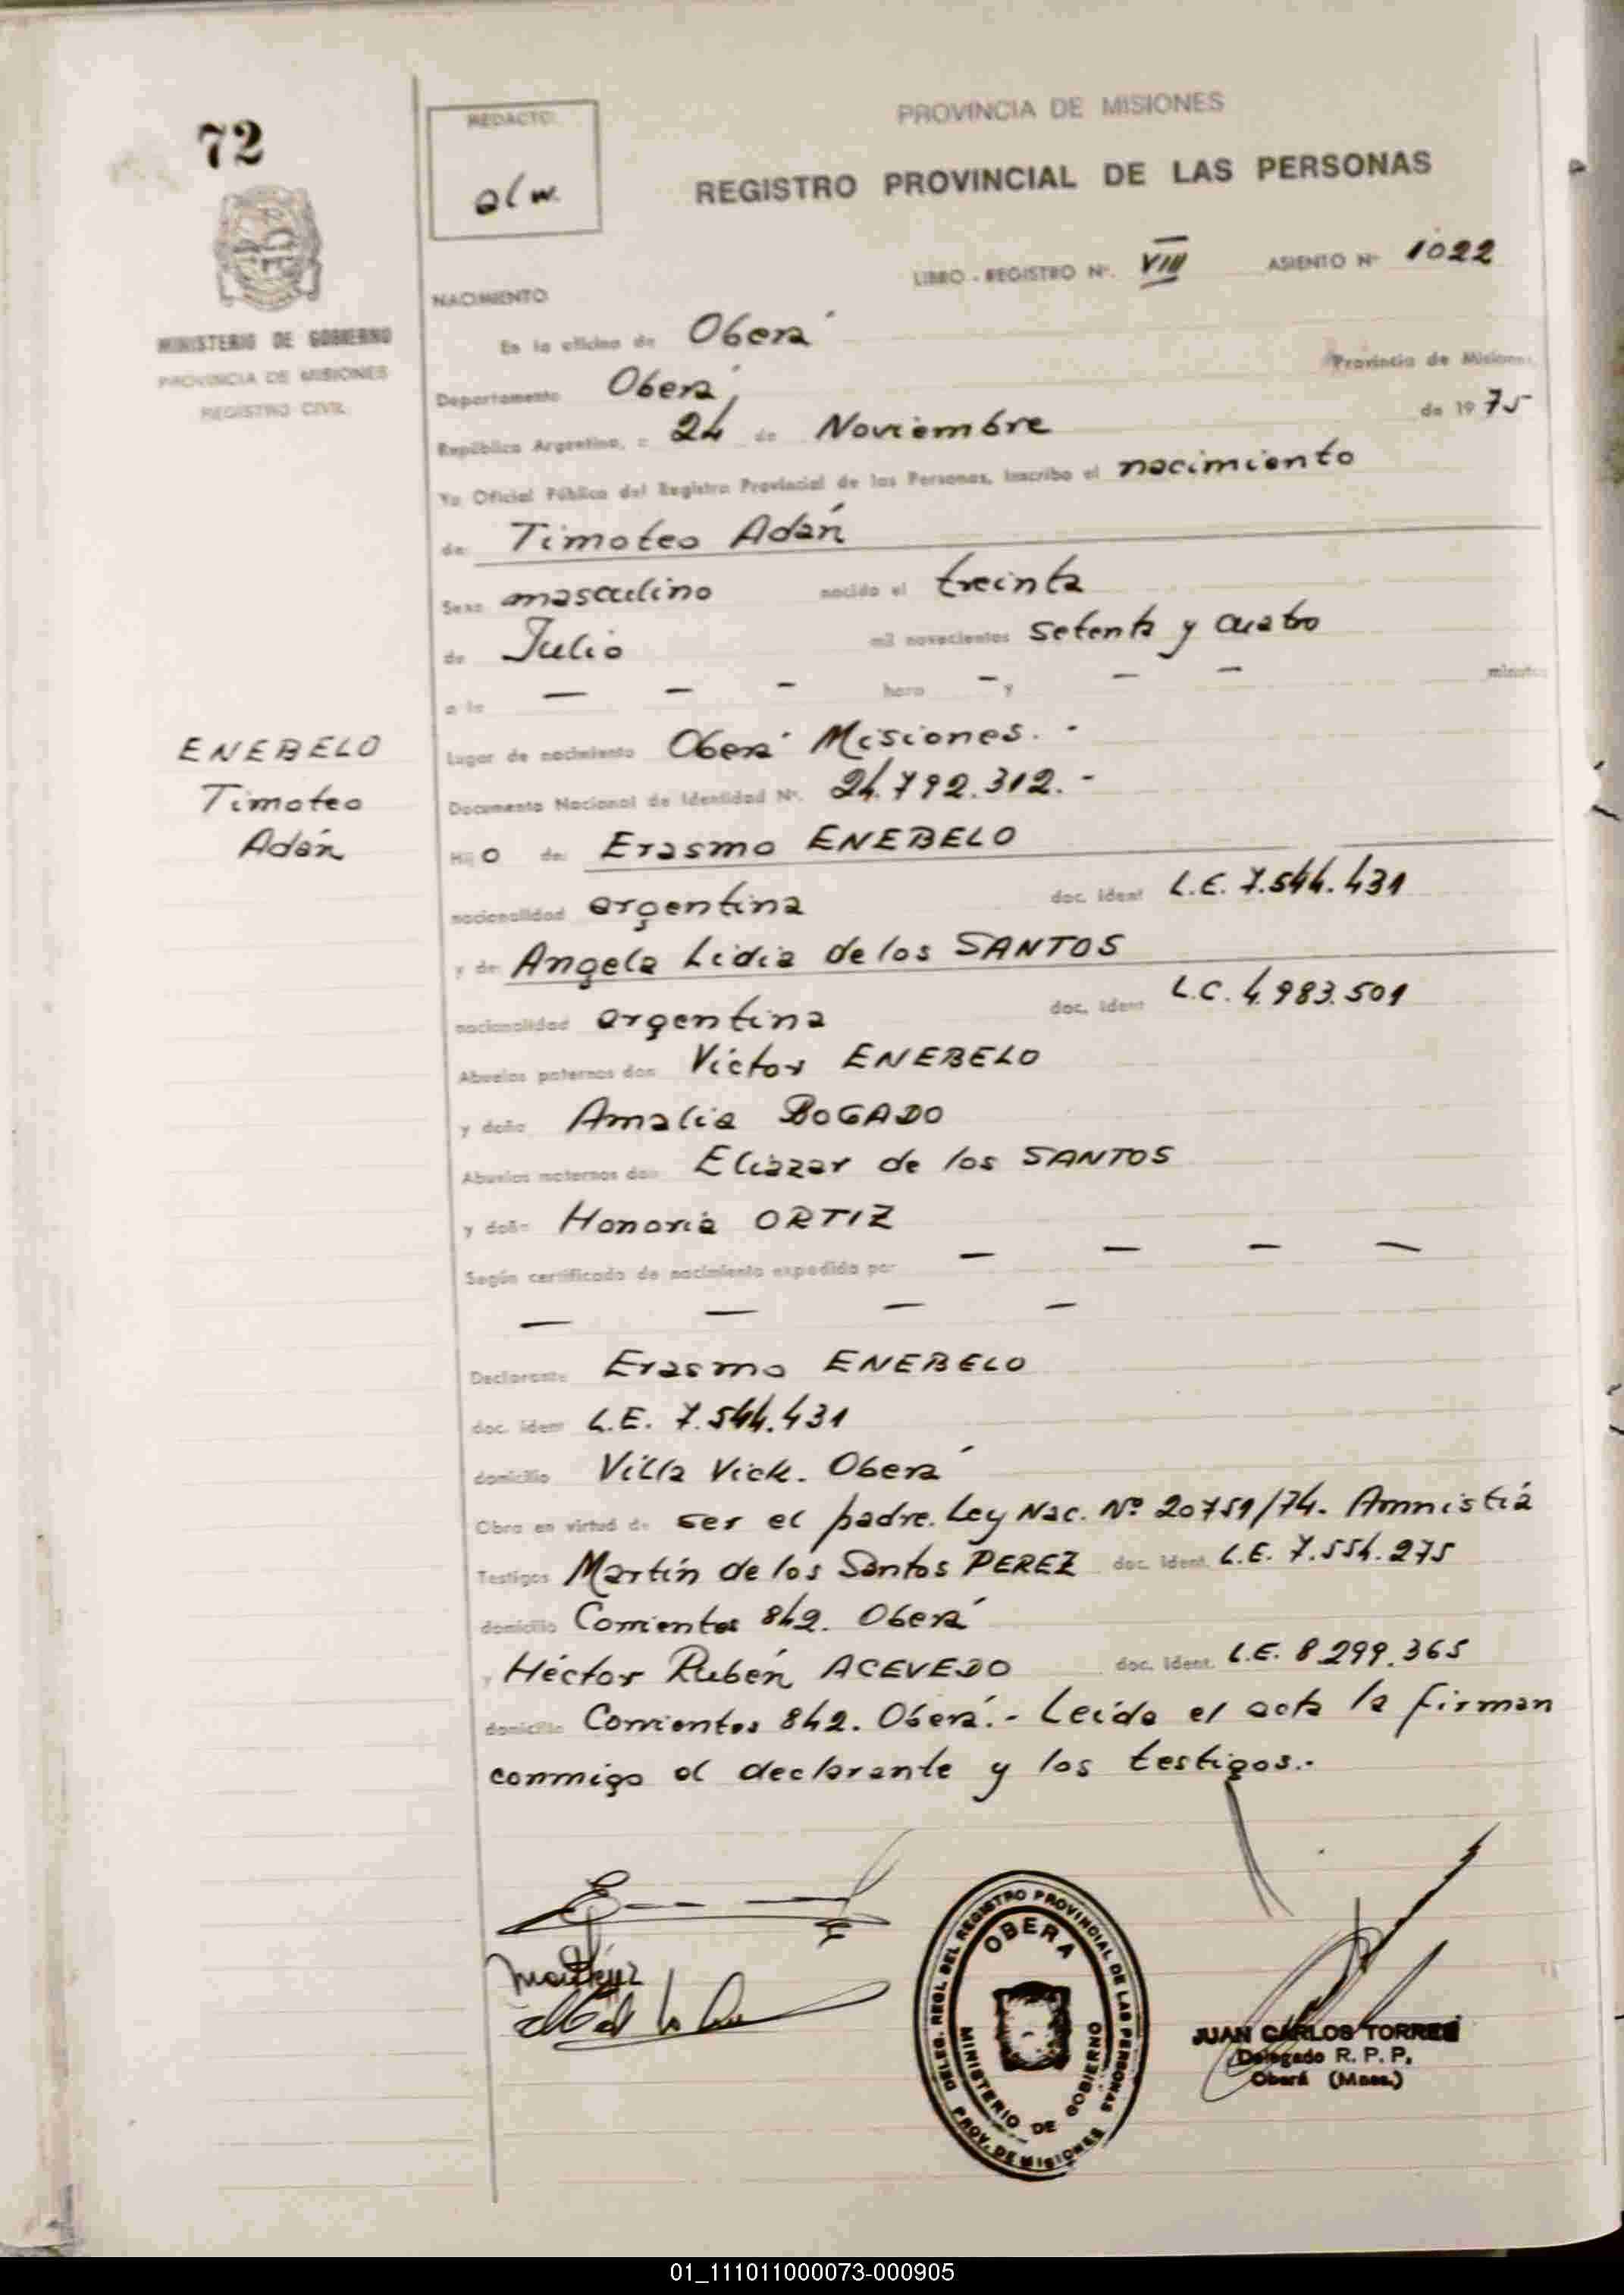 72
REDACTO:
alw.
PROVINCIA DE MISIONES
REGISTRO PROVINCIAL DE LAS PERSONAS
LIBRO - REGISTRO Nº. VIII ASIENTO Nº 1022
MINISTERIO DE GOBIERNO
PROVINCIA DE MISIONES
REGISTRO CIVIL
NACIMIENTO
En la oficina de Oberá
Provincia de Misiones,
Departamento Oberá,
República Argentina, a 24 de Noviembre de 1975
Yo Oficial Público del Registro Provincial de las Personas, inscribo el nacimiento
de: Timoteo Adán
Sexo masculino nacido el treinta
de Julio mil novecientos setenta y cuatro
a la — — — hora — y — — minutos
Lugar de nacimiento Oberá Misiones. -
Documento Nacional de Identidad Nº. 24.792.312. -
ENEBELO
Timoteo
Adán
Hijo de: Erasmo ENEBELO
nacionalidad argentina doc. ident L.E. 7.544.431
y de: Angela Lidia de los SANTOS
nacionalidad argentina doc. ident L.C. 4.983.501
Abuelos paternos don Victor ENEBELO
y doña Amalia BOGADO
Abuelos maternos don Eliazar de los SANTOS
y doña Honoria ORTIZ
Según certificado de nacimiento expedido por — — — —
— — — —
Declarante Erasmo ENEBELO
doc. ident L.E. 7.544.431
domicilio Villa Vick. Oberá
Obra en virtud de ser el padre. Ley Nac. Nº 20751/74. Amnistiá
Testigos Martín de los Santos PEREZ doc. ident. L.E. 7.554.275
domicilio Corrientes 842. Oberá
y Héctor Rubén ACEVEDO doc. ident. L.E. 8.299.365
domicilio Corrientes 842. Oberá.- Leída el acta la firman
conmigo el declarante y los testigos.-
DELEG. REGL. DEL REGISTRO PROVINCIAL DE LAS PERSONAS
OBERA
MINISTERIO DE GOBIERNO
PROV. DE MISIONES
JUAN CARLOS TORRES
Delegado R. P. P.
Oberá (Mnes.)
01_111011000073-000905